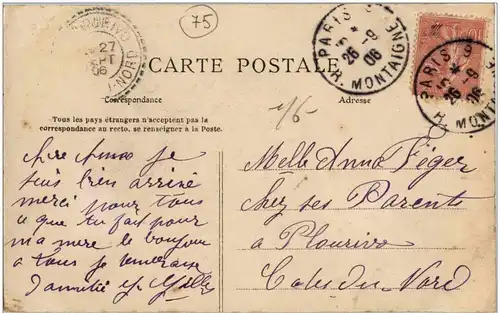 75
PLOURIVO
27
SEPT
06
C. DU NORD
PARIS
26 - 9
06
R. MONTAIGNE
PARIS
26 - 9
06
R. MONTAIGNE
CARTE POSTALE
Correspondance
Adresse
Tous les pays étrangers n'acceptent pas la
correspondance au recto, se renseigner à la Poste.
chère Anna je
suis bien arrivé
merci pour tous
ce que tu fait pour
ma mere le bonjour
a tous je
d'amitié
Melle Anna Péger
chez ses Parents
a Plourivo
Cotes du Nord